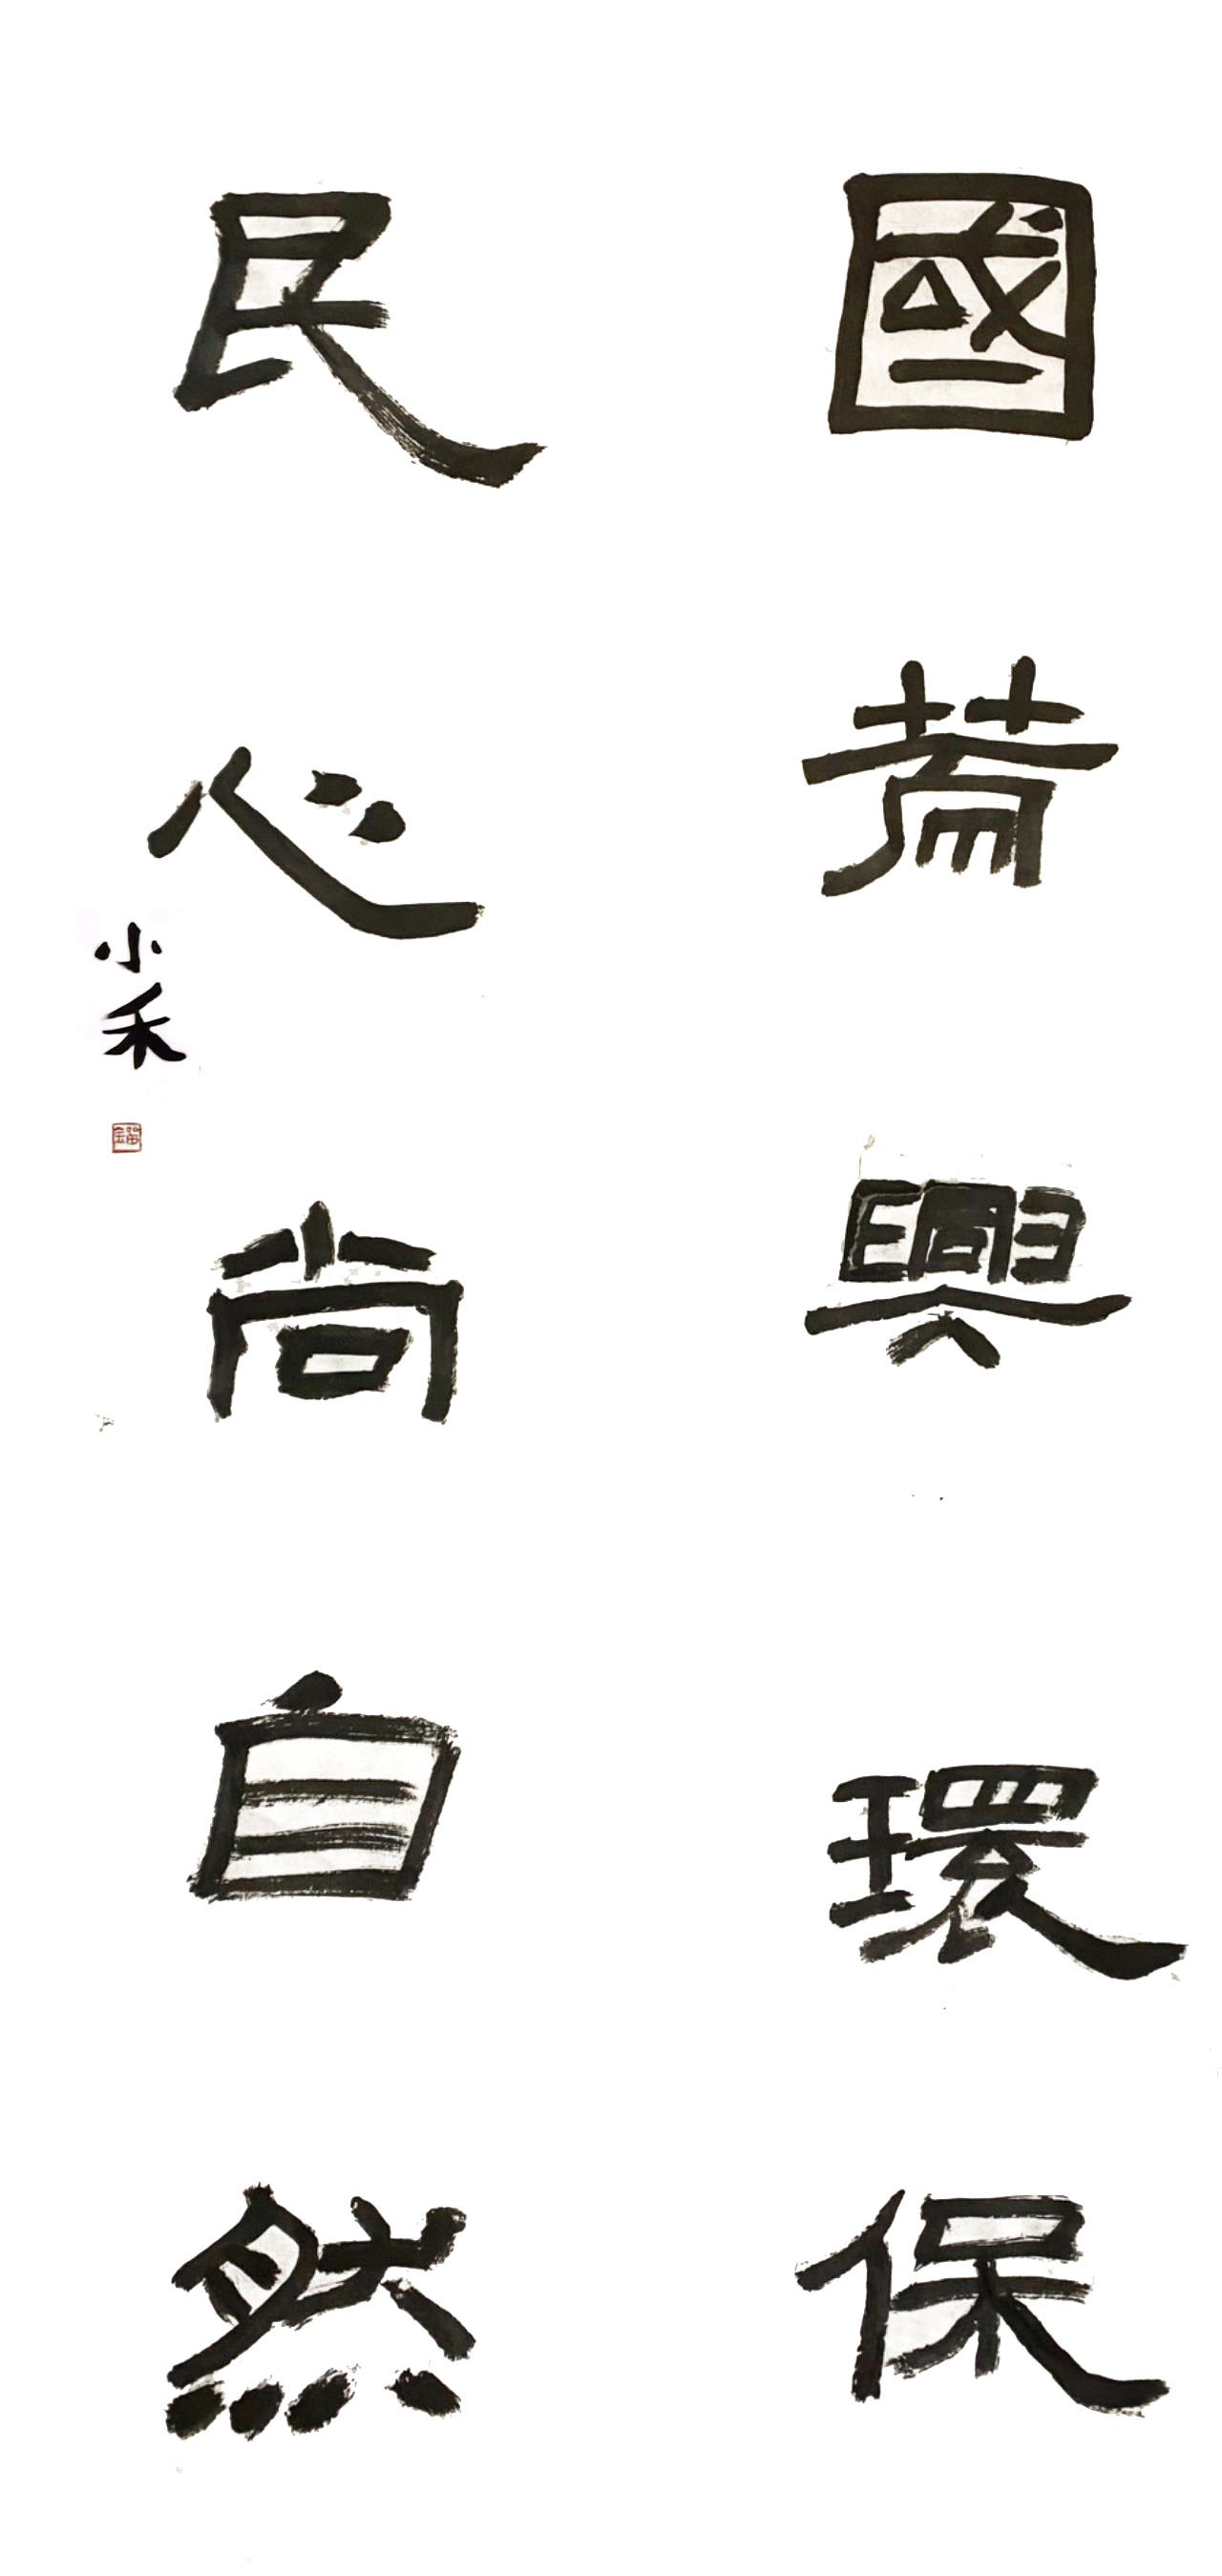 國興環保
民心尚自然
小禾